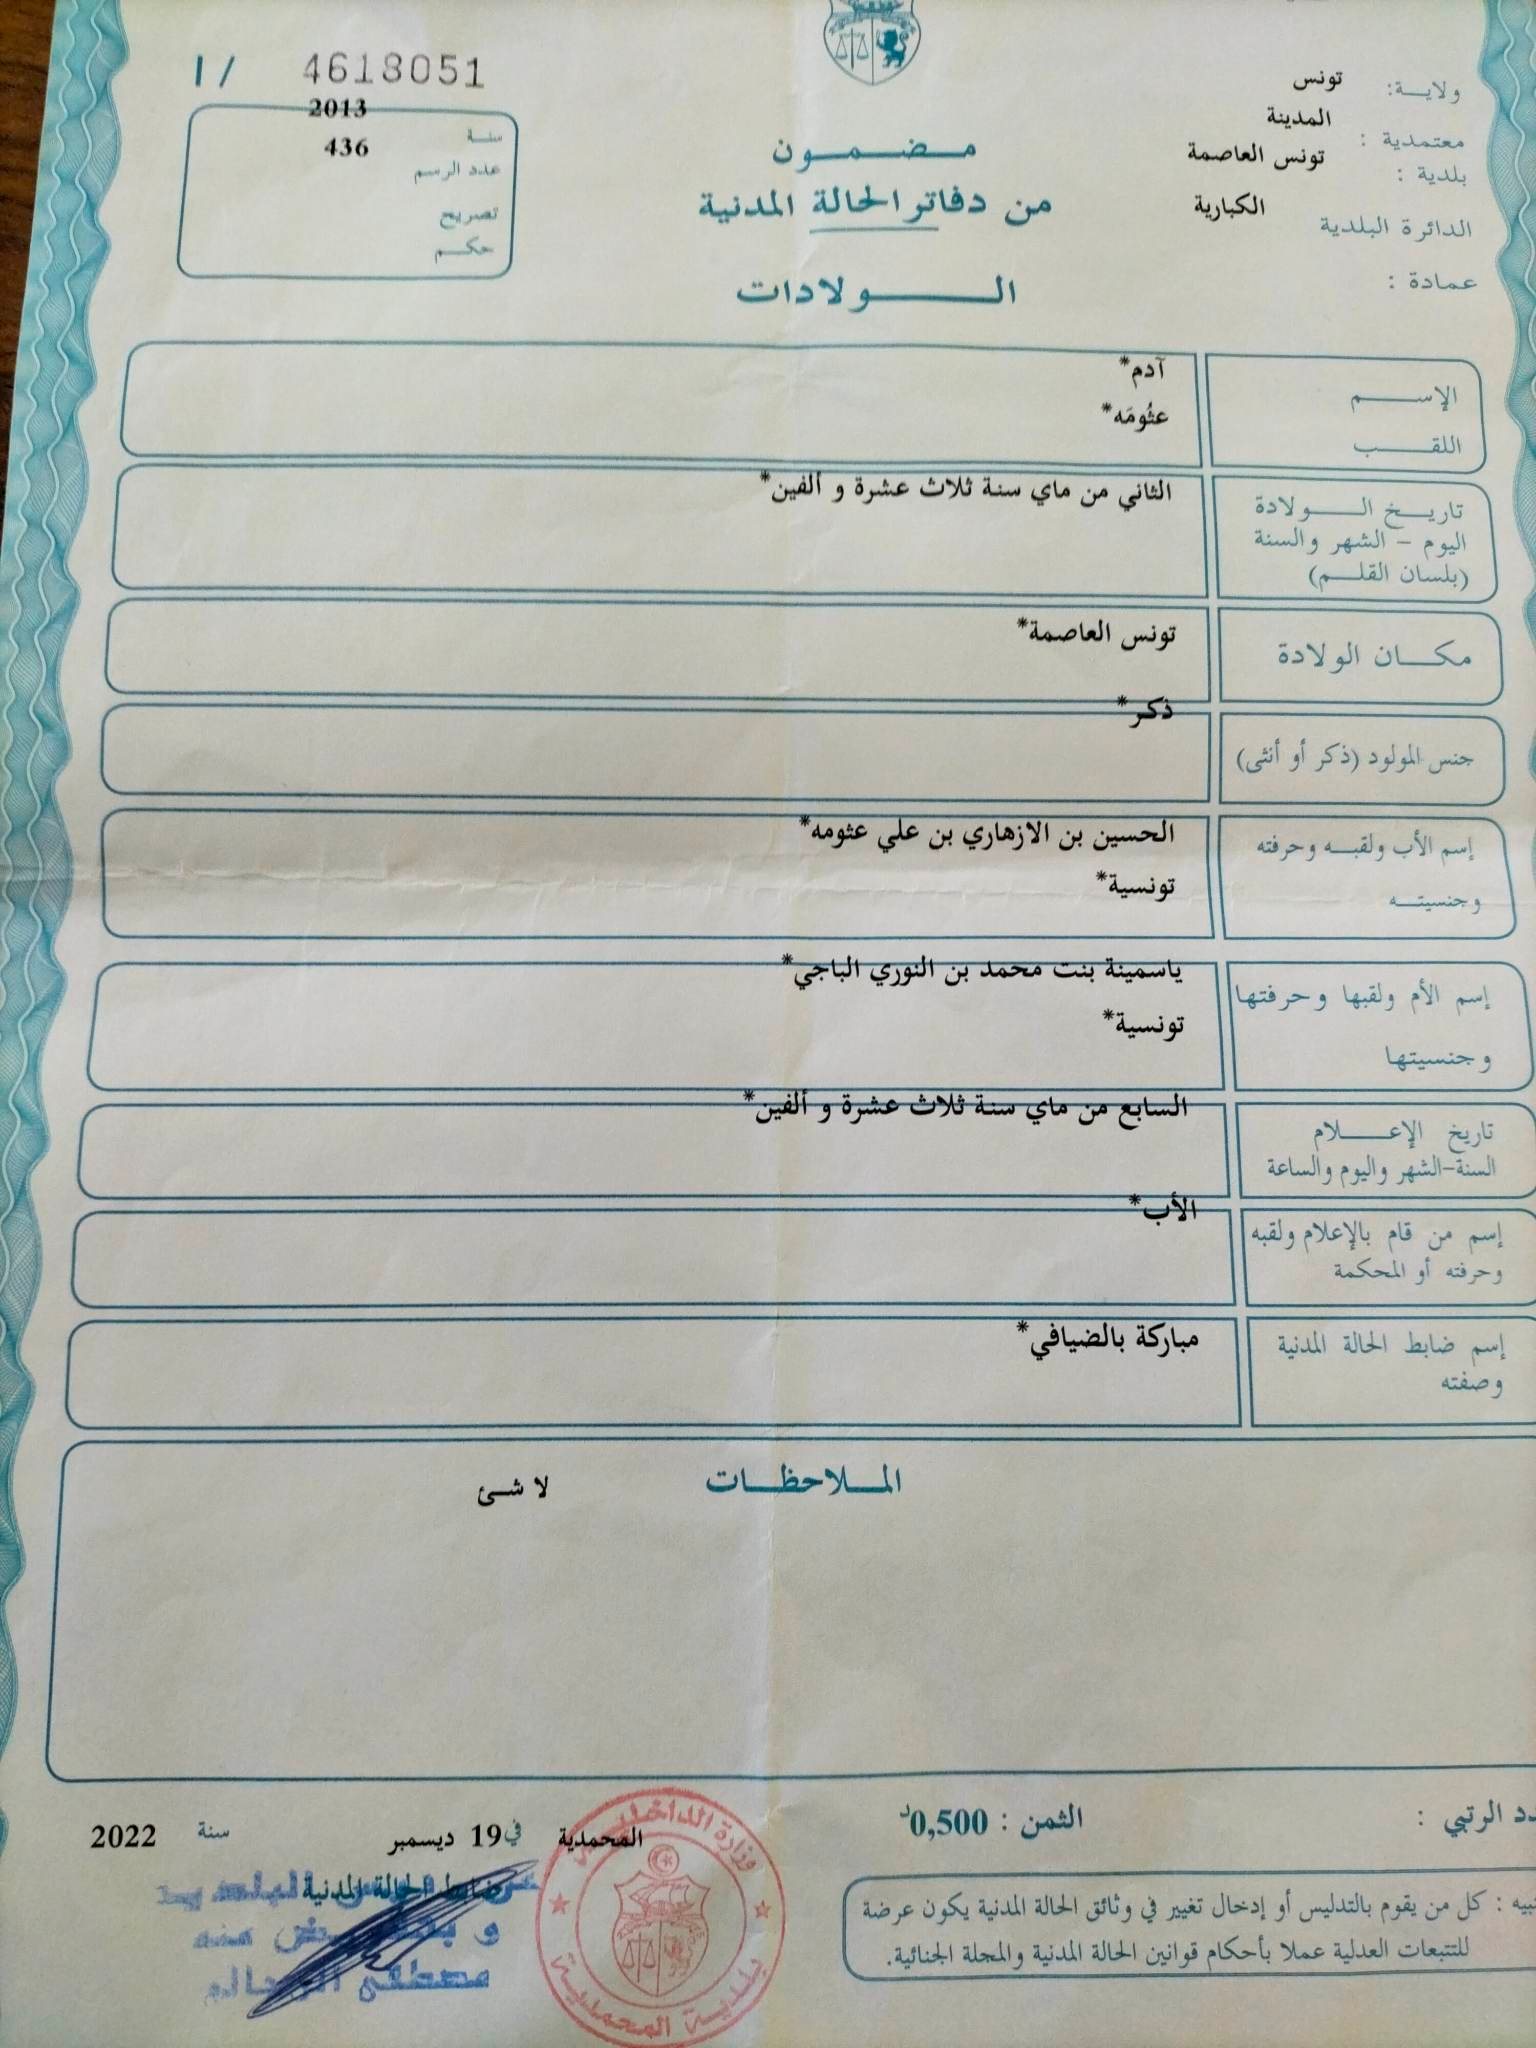 4618051 / 1
ولاية: تونس
معتمدية : المدينة
بلدية : تونس العاصمة
الدائرة البلدية الكبارية
عمادة :
سنة 2013
عدد الرسم 436
تصريح
حكم
مضمون
من دفاتر الحالة المدنية
الولادات
الإسم آدم*
اللقب عثُومَه*
تاريخ الولادة الثاني من ماي سنة ثلاث عشرة و ألفين*
اليوم - الشهر والسنة
(بلسان القلم)
مكان الولادة تونس العاصمة*
جنس المولود (ذكر أو أنثى) ذكر*
إسم الأب ولقبه وحرفته الحسين بن الازهاري بن علي عثومه*
وجنسيته تونسية*
إسم الأم ولقبها وحرفتها ياسمينة بنت محمد بن النوري الباجي*
وجنسيتها تونسية*
تاريخ الإعلام السابع من ماي سنة ثلاث عشرة و ألفين*
السنة-الشهر واليوم والساعة
إسم من قام بالإعلام ولقبه الأب*
وحرفته أو المحكمة
إسم ضابط الحالة المدنية مباركة بالضيافي*
وصفته
الملاحظات لا شئ
الرتبي :
الثمن : 0,500د
المحمدية في 19 ديسمبر سنة 2022
ضابط الحالة المدنية
منه
مصطفى
وزارة الداخلية
بلدية المحمدية
: كل من يقوم بالتدليس أو إدخال تغيير في وثائق الحالة المدنية يكون عرضة
للتتبعات العدلية عملا بأحكام قوانين الحالة المدنية والمجلة الجنائية.